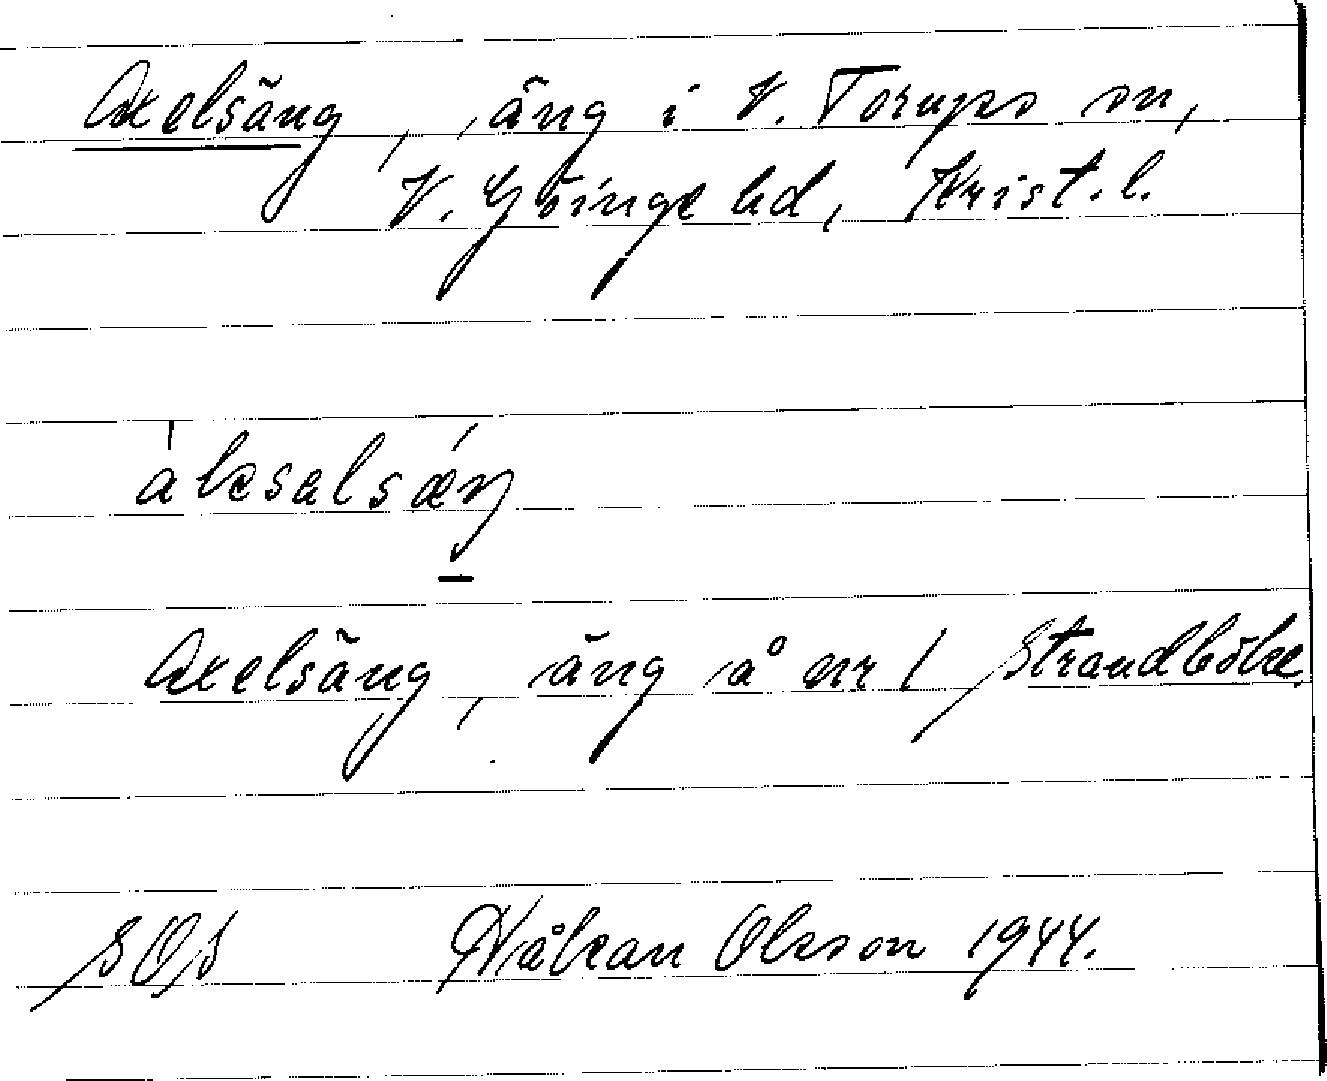 Axelsäng, äng i V. Torups sn,
V. Göinge hd, Krist. l.
áksalsǽŋ
Axelsäng, äng å nr 1 Strandböke
SOS Håkan Olsson 1944.